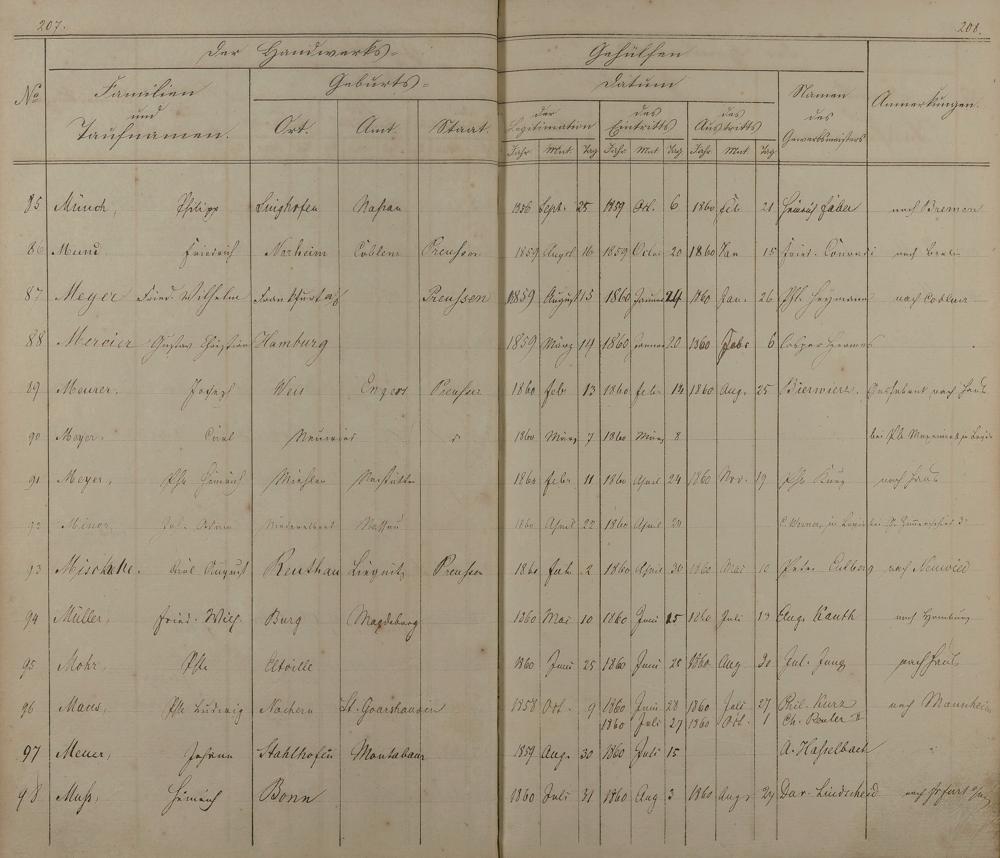 207. 208.
Der Handwerks- Gehülfen
No Familien und Taufnamen. Geburts- Datum Namen des Gewerbsmeisters Anmerkungen.
Ort. Amt. Staat. der Legitimation des Eintritts des Austritts
Jahr Mnt. Tag Jahr Mnt Tag Jahr Mnt. Tag
85 Münch, Philipp Linghofen Nassau 1856 Sept. 25 1859 Oct. 6 1860 Feb. 21 Heinrich Faber nach Bremen
86 Mund Friedrich Norheim Coblenz Preussen 1859 August 16 1859 October 20 1860 Jan 15 Fried. Conradi nach Berlin
87 Meyer Fried. Wilhelm Frankfurt a/O Preussen 1859 August 13 1860 Januar 24 1860 Jan. 26 Ph. Heymann nach Coblenz
88 Mercier Gustav Christian Hamburg 1859 März 14 1860 Januar 20 1860 Febr 6 Casper Hermes
89 Meurer. Joseph Weis Engers Preussen 1860 Feb 13 1860 Feb. 14 1860 Aug. 25 Bierwirz. nach Haus
90 Meyer. Carl Neuwied 1860 März 7 1860 März 8 bei Ph.
91 Meyer, Ph. Heinrich Miehlen Nastätten 1860 Feb. 11 1860 April 24 1860 Nov. 19 Ph. Kurz nach Haus
92 Minor Nassau 1860 April 22 1860 April 24
93 Mischke. Karl August Renthau Liegnitz Preussen 1860 Feb. 2 1860 April 30 1860 Mai 10 Peter Culberg nach Neuwied
94 Müller, Fried. Wilh. Burg Magdeburg 1860 Mai 10 1860 Juni 15 1860 Juli 13 Aug. Kauth nach Homburg
95 Mohr, Ph. Eltville 1860 Juni 25 1860 Juni 28 1860 Aug 30 Jul. Jung nach Haus
96 Maus, Ph. Ludwig Nochern St. Goarshausen 1858 Oct. 9 1860 Juni 28 1860 Juli 27 Phil. Kurz nach Mannheim
1860 Juli 27 1860 Oct. 1 Ch. Reuter II
97 Meuer, Johann Stahlhofen Montabaur 1859 Aug. 30 1860 Juli 15 A. Hasselbach "
98 Muß, Heinrich Bonn 1860 Juli 31 1860 Aug 3 1860 Aug. 29 Dav. Lindscheid nach